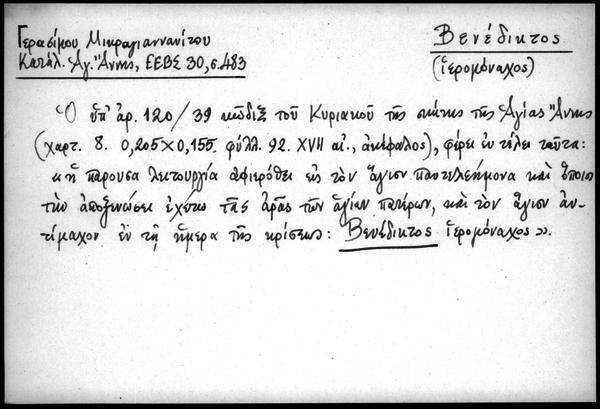 Γερασίμου Μικραγιαννανίτου
Κατάλ. Ἁγ. Ἄννης, ΕΕΒΣ 30, σ. 483
Βενέδικτος
(ἱερομόναχος)
Ὁ ὑπ' ἀρ. 120/39 κῶδιξ τοῦ Κυριακοῦ τῆς σκήτης τῆς Ἁγίας Ἄννης
(χαρτ. 8. 0,205×0,155. φύλλ. 92. XVII αἰ., ἀκέφαλος), φέρει ἐν τέλει ταῦτα:
«ἡ παρουσα λιτουργία αφιερόθει εἰς τὸν ἅγιον παντελεήμονα καὶ ὅποιος
τὴν ἀποξινώσει ἐχέτω τᾶς ἀρᾶς τῶν ἁγίων πατέρων, καὶ τὸν ἅγιον ἀν-
τίμαχον ἐν τῇ ἡμερα τῆς κρίσεως: Βενέδικτος ἱερομόναχος».